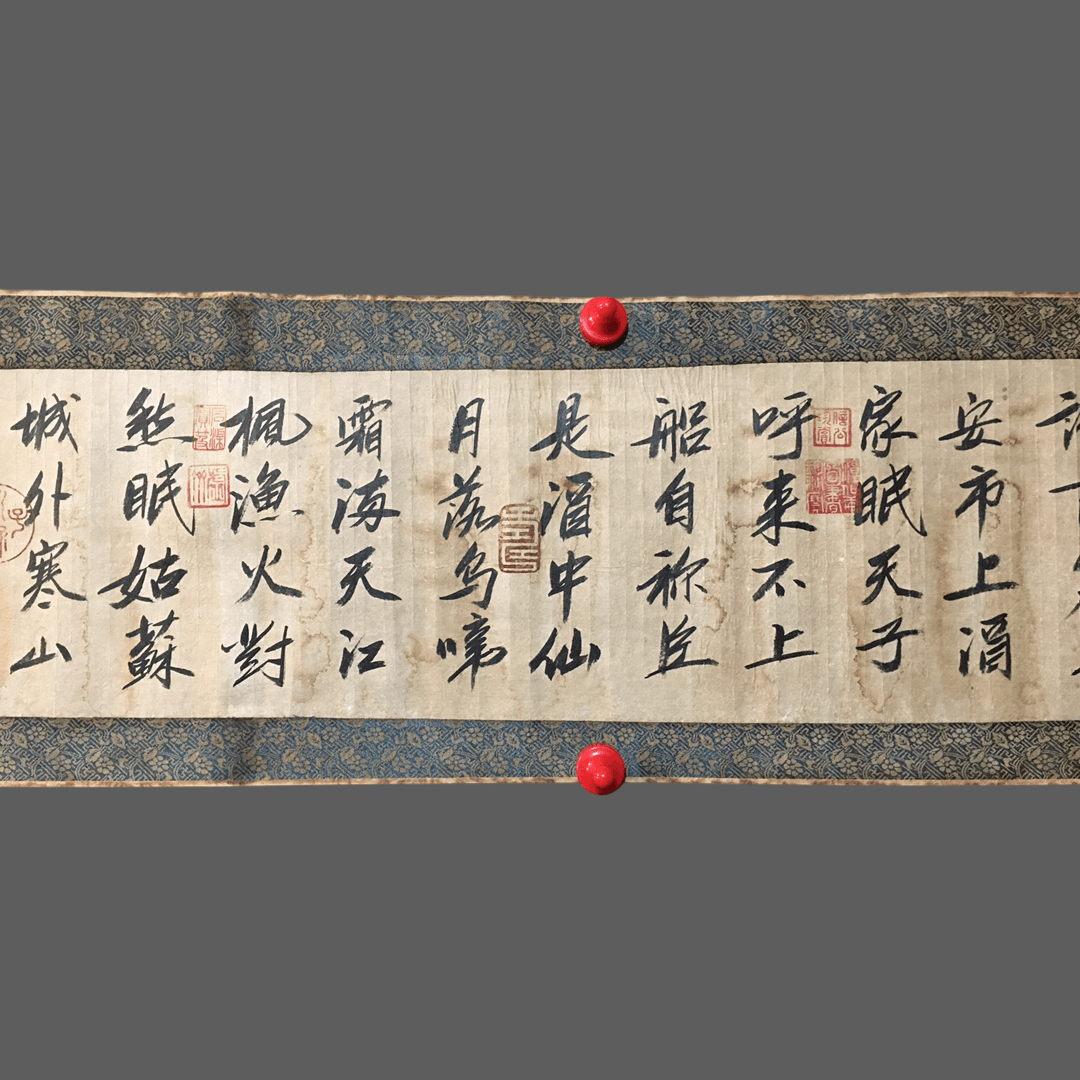 安市上酒
家眠天子
呼来不上
船自称臣
是酒中仙
月落乌啼
霜海天江
楓漁火對
愁眠姑蘇
城外寒山